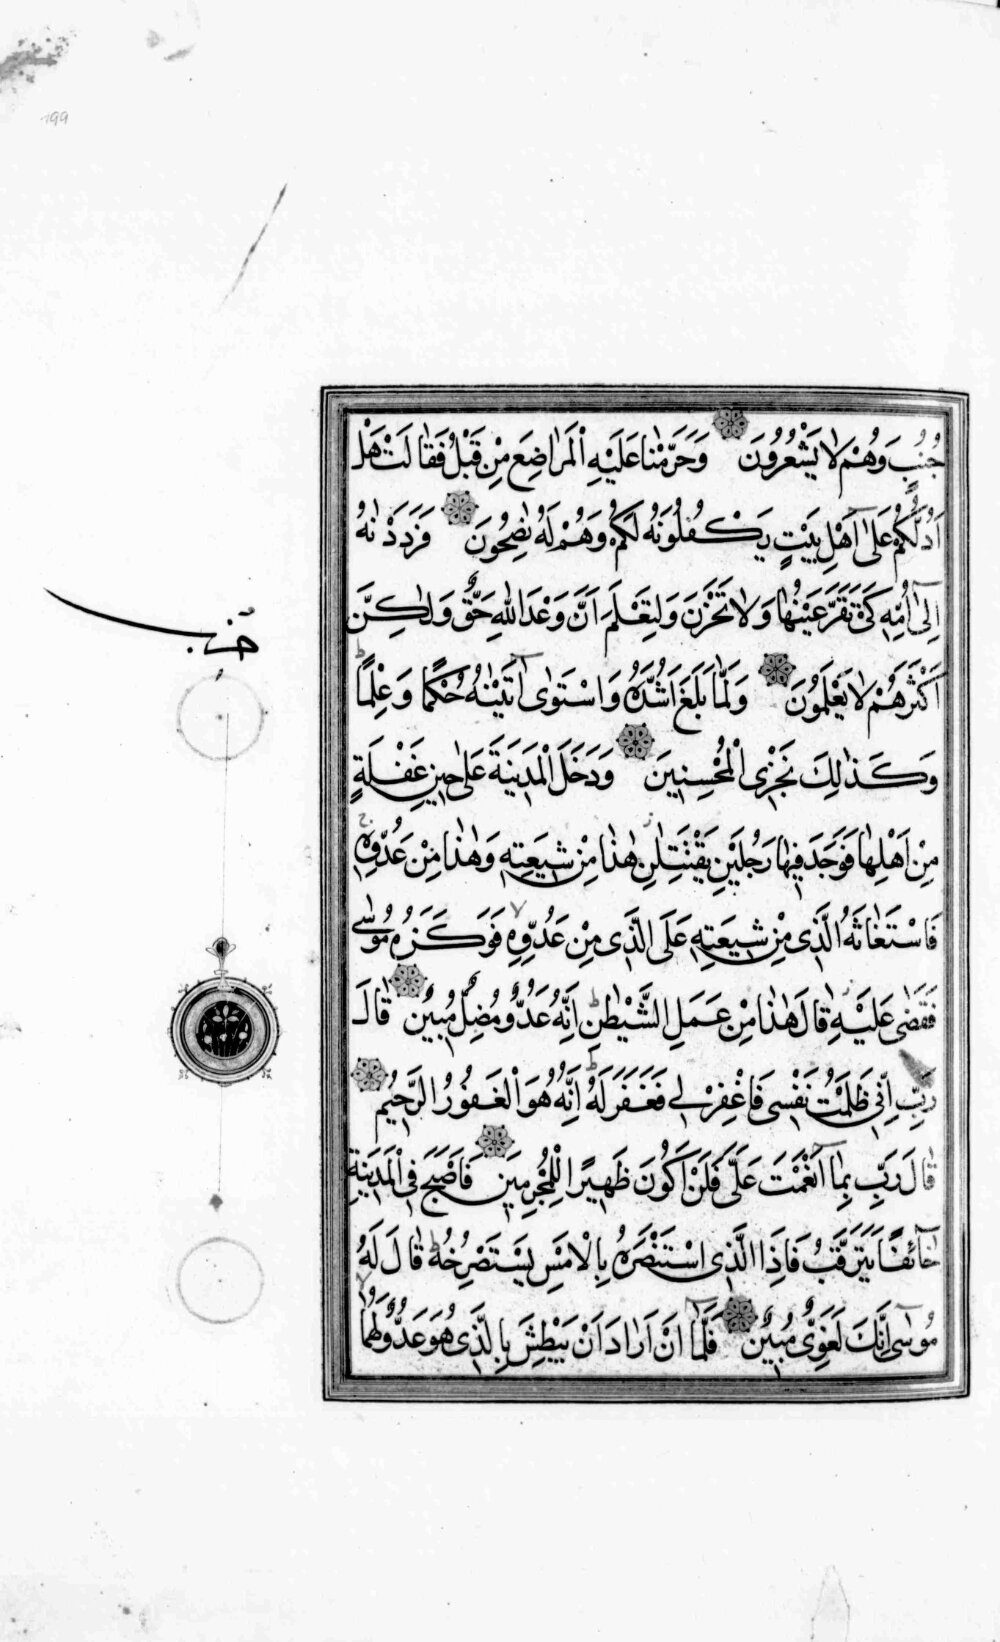 199
جُنُبٍ وَهُمْ لَا يَشْعُرُونَ وَحَرَّمْنَا عَلَيْهِ الْمَرَاضِعَ مِنْ قَبْلُ فَقَالَتْ هَلْ
اَدُلُّكُمْ عَلٰى اَهْلِ بَيْتٍ يَكْفُلُونَهُ لَكُمْ وَهُمْ لَهُ نَاصِحُونَ فَرَدَدْنَاهُ
اِلٰى اُمِّهِ كَىْ تَقَرَّ عَيْنُهَا وَلَا تَحْزَنَ وَلِتَعْلَمَ اَنَّ وَعْدَ اللهِ حَقٌّ وَلٰكِنَّ
اَكْثَرَهُمْ لَا يَعْلَمُونَ وَلَمَّا بَلَغَ اَشُدَّهُ وَاسْتَوٰى اٰتَيْنٰهُ حُكْمًا وَعِلْمًا
وَكَذٰلِكَ نَجْزِى الْمُحْسِنِينَ وَدَخَلَ الْمَدِينَةَ عَلٰى حِينِ غَفْلَةٍ
مِنْ اَهْلِهَا فَوَجَدَ فِيهَا رَجُلَيْنِ يَقْتَتِلٰنِ هٰذَا مِنْ شِيعَتِهِ وَهٰذَا مِنْ عَدُوِّهِ
فَاسْتَغَاثَهُ الَّذِى مِنْ شِيعَتِهِ عَلَى الَّذِى مِنْ عَدُوِّهِ فَوَكَزَهُ مُوسٰى
فَقَضٰى عَلَيْهِ قَالَ هٰذَا مِنْ عَمَلِ الشَّيْطٰنِ اِنَّهُ عَدُوٌّ مُضِلٌّ مُبِينٌ قَالَ
رَبِّ اِنِّى ظَلَمْتُ نَفْسِى فَاغْفِرْ لِى فَغَفَرَ لَهُ اِنَّهُ هُوَ الْغَفُورُ الرَّحِيمُ
قَالَ رَبِّ بِمَا اَنْعَمْتَ عَلَىَّ فَلَنْ اَكُونَ ظَهِيرًا لِلْمُجْرِمِينَ فَاَصْبَحَ فِى الْمَدِينَةِ
خَائِفًا يَتَرَقَّبُ فَاِذَا الَّذِى اسْتَنْصَرَهُ بِالْاَمْسِ يَسْتَصْرِخُهُ قَالَ لَهُ
مُوسٰى اِنَّكَ لَغَوِىٌّ مُبِينٌ فَلَمَّا اَنْ اَرَادَ اَنْ يَبْطِشَ بِالَّذِى هُوَ عَدُوٌّ لَهُمَا
حزب